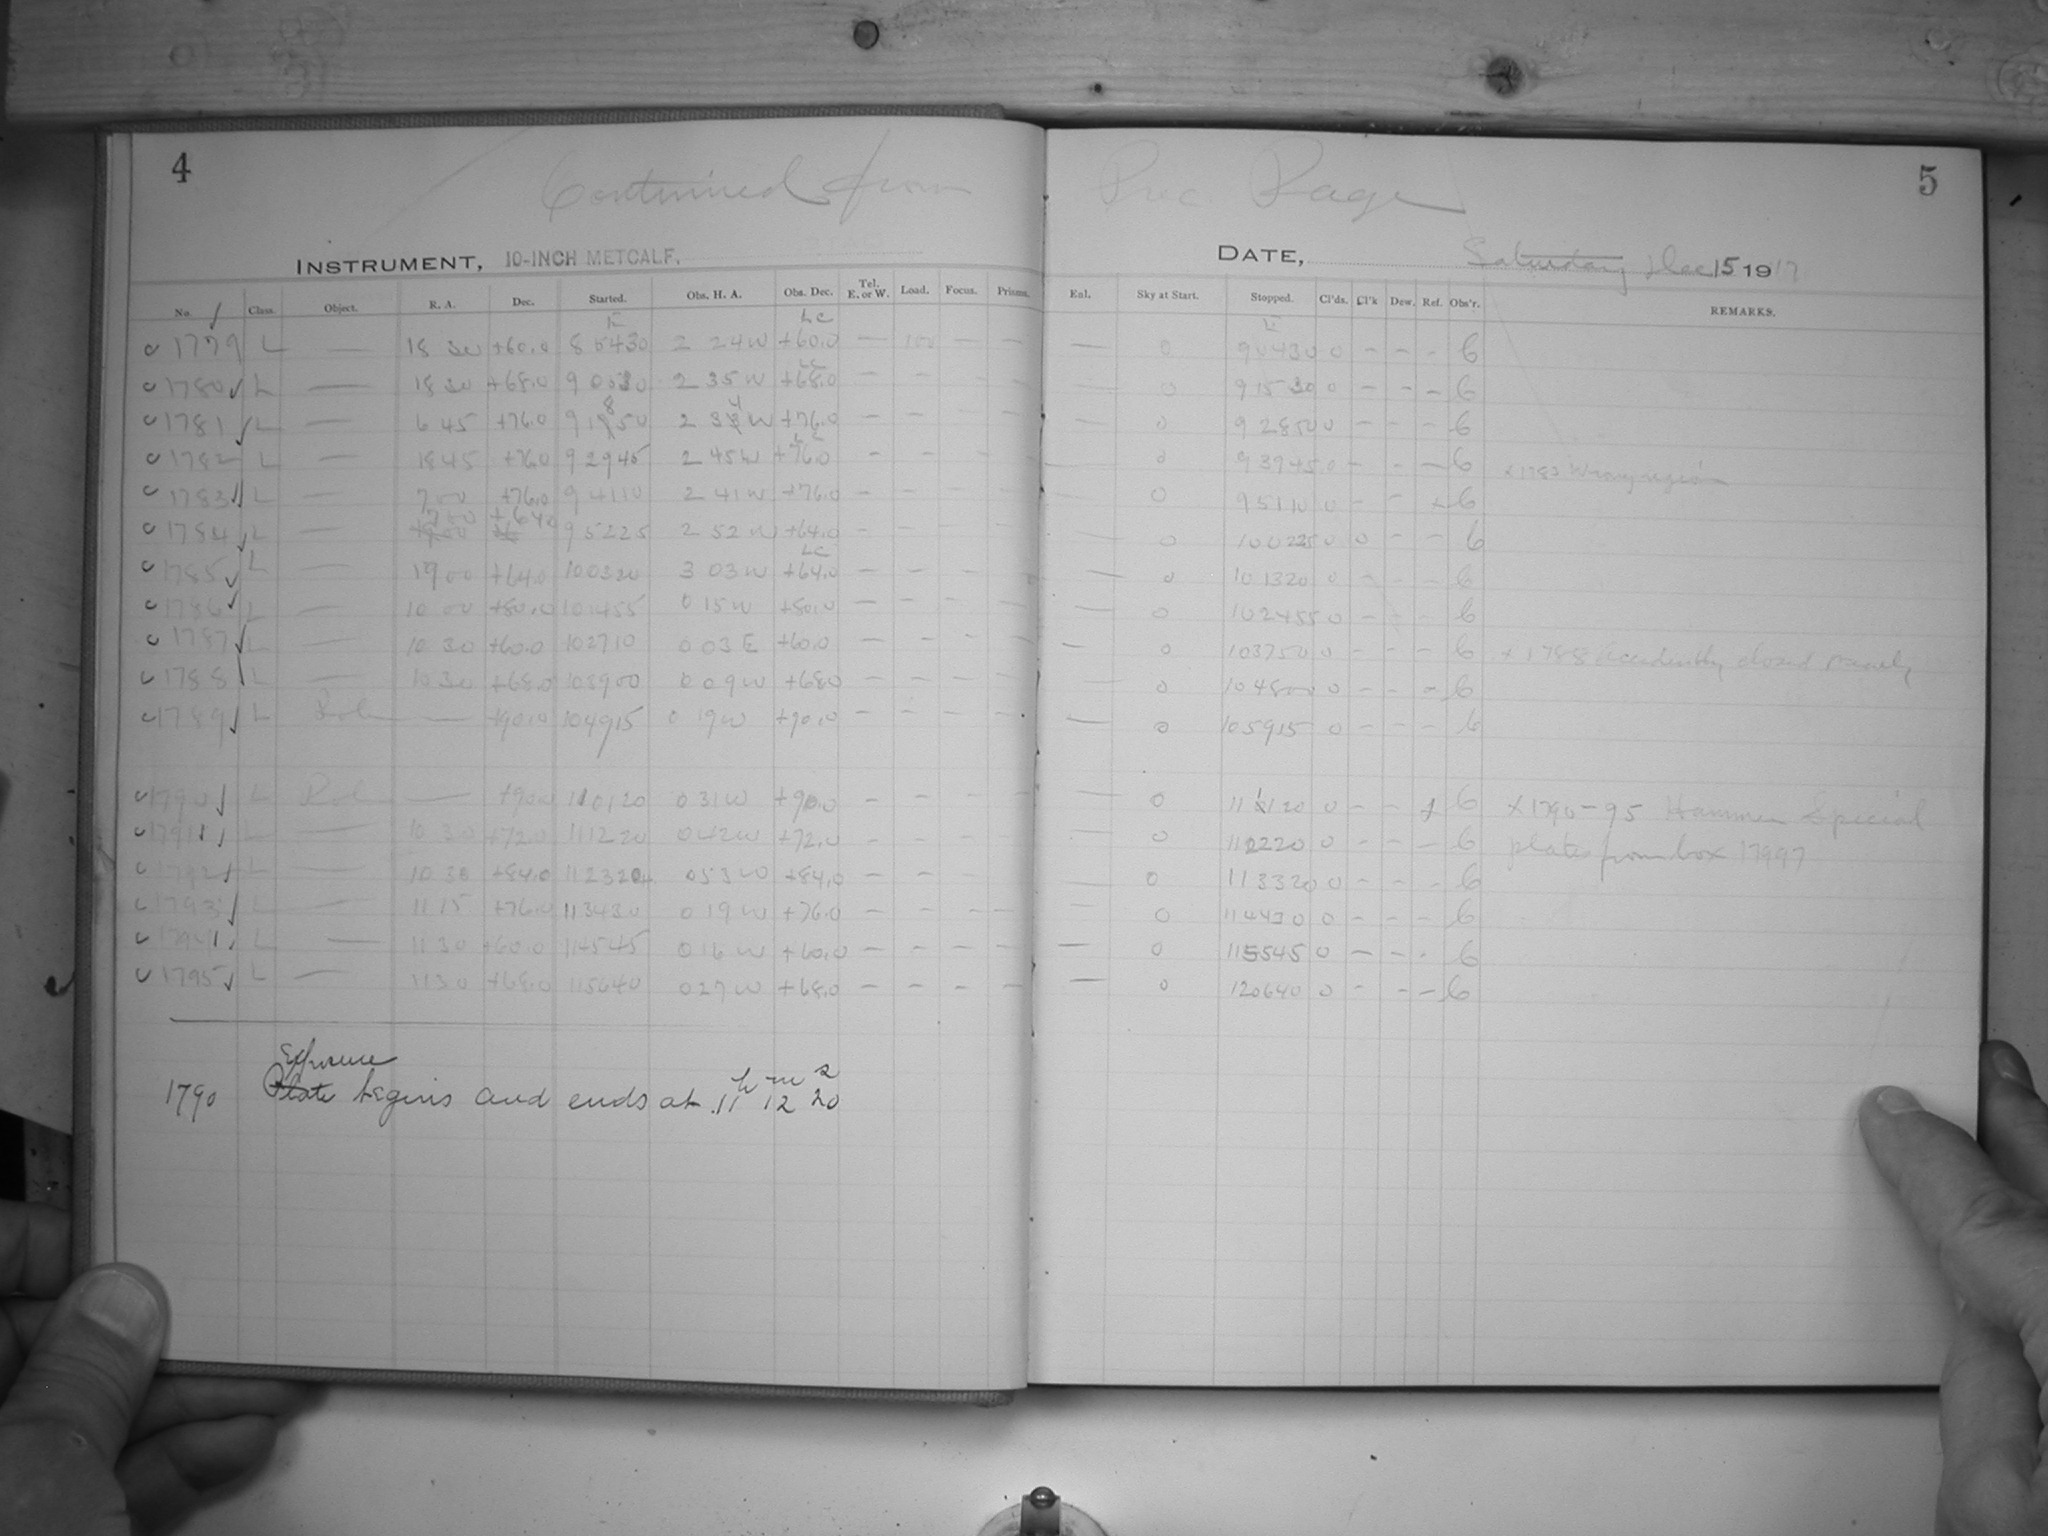 4
Continued from Prec. Page
5
INSTRUMENT, 10-INCH METCALF.
DATE, Saturday Dec 15 1917
No. Class. Object. R. A. Dec. Started. Obs. H. A. Obs. Dec. Tel. E. or W. Load. Focus. Prisms. Enl. Sky at Start. Stopped. Cl'ds. Cl'k Dew. Ref. Obs'r. REMARKS.
1779 L — 18 30 +60.0 8 5430 2 24 W LC +60.0 — 100 — — — 0 90430 0 - - - 6
1780 L — 18 30 +68.0 9 0530 2 35 W LC +68.0 — — — — — 0 91530 0 - - - 6
1781 L — 6 45 +76.0 91850 2 34 W +76.0 — — — — — 0 92850 0 - - - 6
1782 L — 18 45 +76.0 92945 2 45 W LC +76.0 - - - - — 0 93945 0 - - - 6 x 1783 Wrong region
1783 L — 7 00 +76.0 94110 2 41 W +76.0 — — — — — 0 95110 0 - - x 6
1784 L — 7 00 +64.0 95225 2 52 W +64.0 — — 0 100225 0 0 - - 6
1785 L — 19 00 +64.0 100320 3 03 W LC +64.0 - - - - — 0 101320 0 - - - 6
1786 L — 10 00 +80.0 101455 0 15 W +80.0 — — — — — 0 102455 0 - - - 6
1787 L — 10 30 +60.0 102710 0 03 E +60.0 — — - — — 0 103750 0 - - - 6 x 1788 accidently closed
1788 L — 10 30 +68.0 103900 0 09 W +68.0 — — - - — 0 104800 0 - - - 6
1789 L Pole — +90.0 104915 0 19 W +90.0 — - — — — 0 105915 0 - - - 6
1790 L Pole — +90.0 110120 0 31 W +90.0 - - - - — 0 111120 0 - - x 6 x 1790-95 Hammer Special
1791 L — 10 30 +72.0 111220 0 42 W +72.0 — — - - — 0 112220 0 - - - 6 plates from box 17997
1792 L — 10 30 +84.0 112320 0 53 W +84.0 — — — 0 113320 0 - - - 6
1793 L — 11 15 +76.0 113430 0 19 W +76.0 — — - — — 0 114430 0 - - - 6
1794 L — 11 30 +60.0 114545 0 16 W +60.0 — — — — — 0 115545 0 — - - 6
1795 L — 11 30 +68.0 115640 0 27 W +68.0 — — — — — 0 120640 0 - - - 6
Exposure
1790 Plate begins and ends at 11h 12m 20s